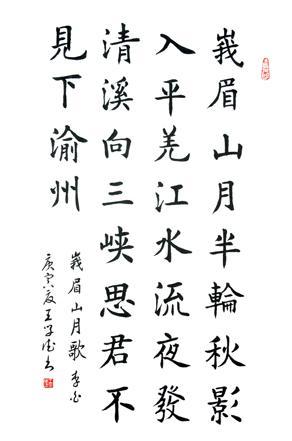 峩眉山月半輪秋影
入平羌江水流夜發
清溪向三峡思君不
見下渝州
峩眉山月歌 李白
庚寅夏王学德書